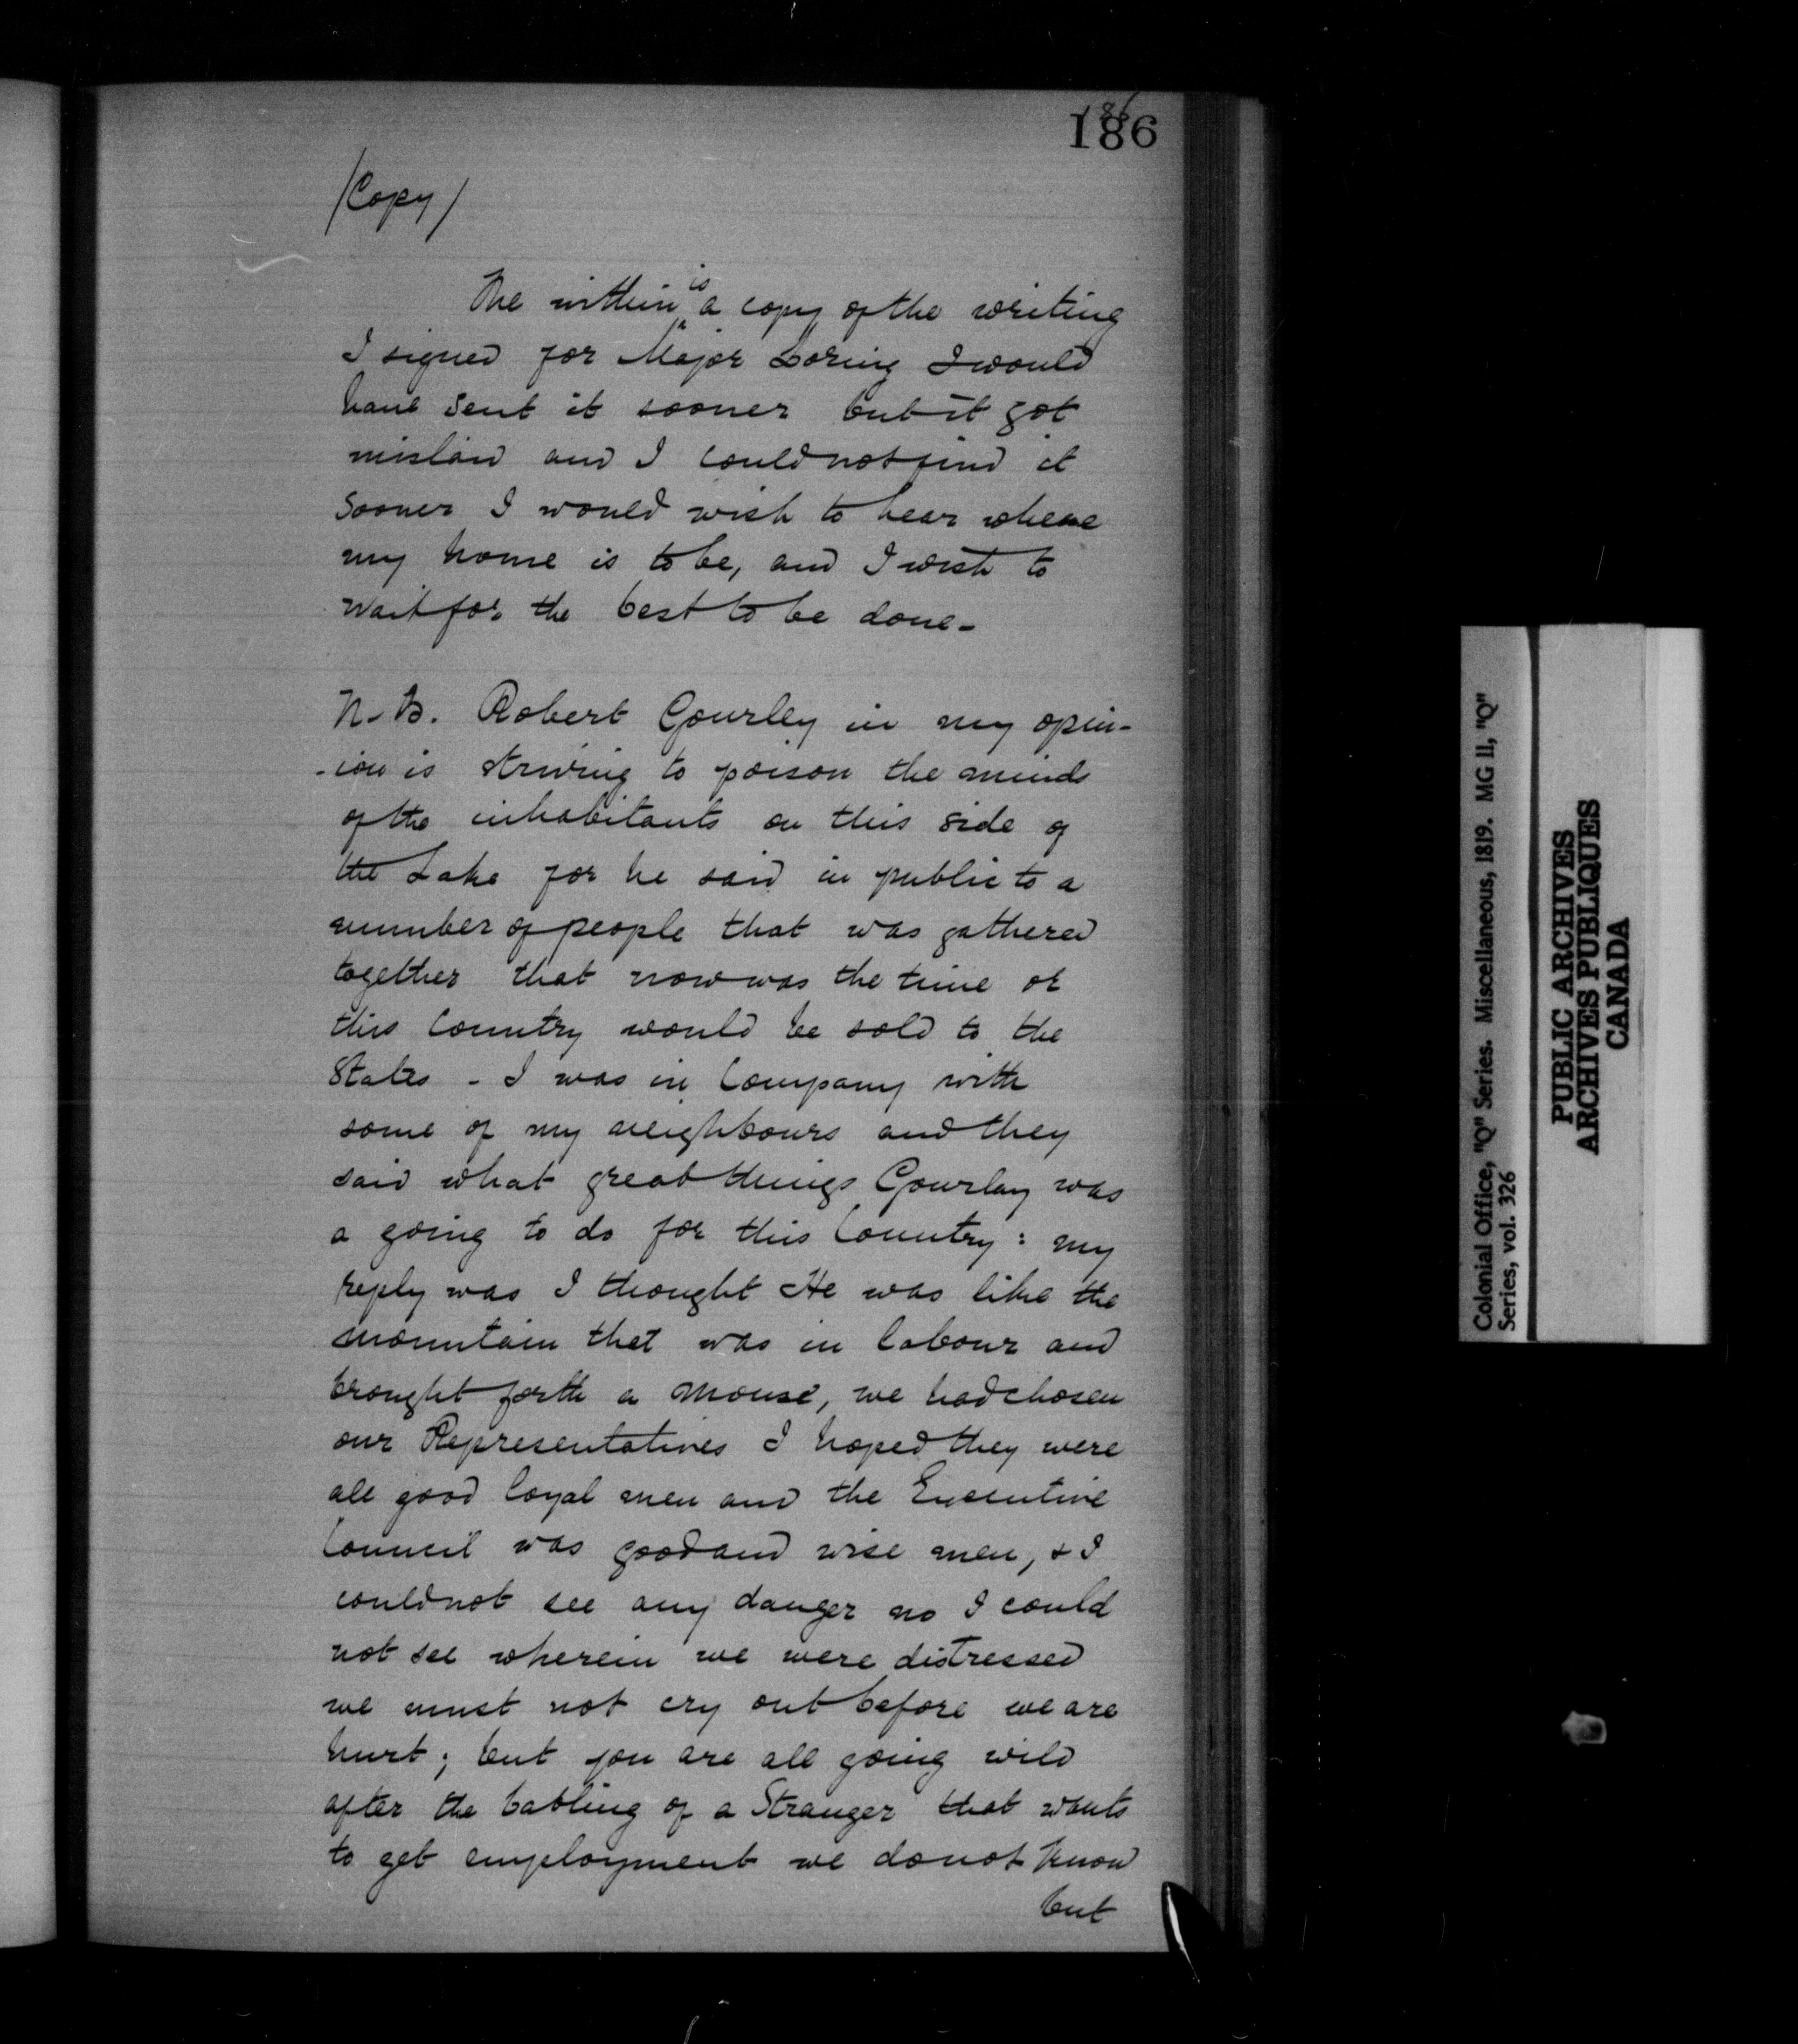 186
186
/Copy/
The within is a copy of the writing
I signed for Major Loring I would
have sent it sooner but it got
mislaid and I could not find it
sooner I would wish to hear where
my home is to be, and I wish to
wait for the best to be done -
N.B. Robert Gourley in my opin-
-ion is striving to poison the minds
of the inhabitants on this side of
the Lake for he said in public to a
number of people that was gathered
together that now was the time or
this Country would be sold to the
States - I was in Company with
some of my neighbours and they
said what great things Gourlay was
a going to do for this Country: my
reply was I thought He was like the
mountain that was in labour and
brought forth a mouse, we had chosen
our Representatives I hoped they were
all good loyal men and the Executive
Council was good and wise men, & I
could not see any danger no I could
not see wherein we were distressed
we must not cry out before we are
hurt; but you are all going wild
after the babling of a Stranger that wants
to get employment we do not know
but
Colonial Office, "Q" Series. Miscellaneous, 1819. MG 11, "Q"
Series, vol. 326
PUBLIC ARCHIVES
ARCHIVES PUBLIQUES
CANADA